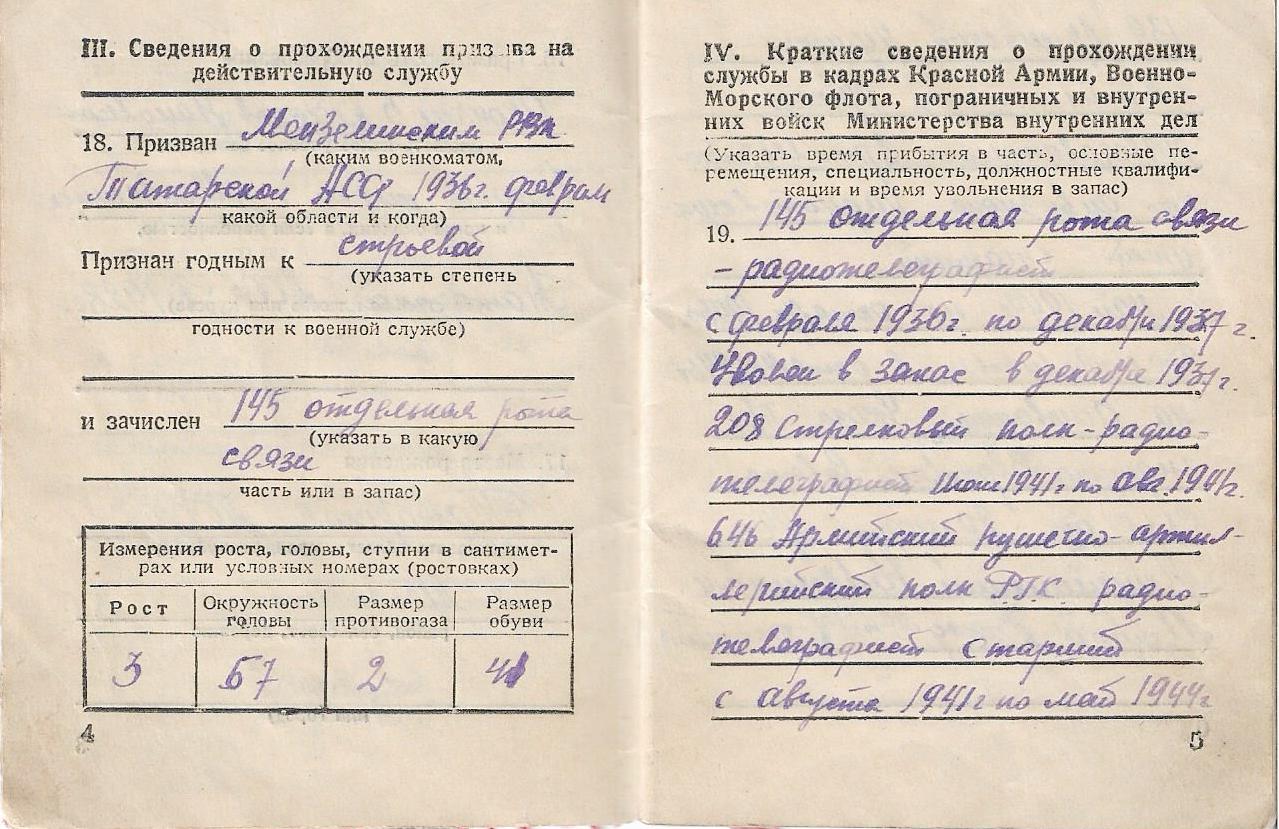 III. Сведения о прохождении призыва на
действительную службу
18. Призван Мензелинским РВК
(каким военкоматом,
Татарской АССР 1936 г. феврал
какой области и когда)
Признан годным к строевой
(указать степень
годности к военной службе)
и зачислен 145 отдельная рота
(указать в какую
связи
часть или в запас)
Измерения роста, головы, ступни в сантимет-
рах или условных номерах (ростовках)
Рост Окружность головы Размер противогаза Размер обуви
3 57 2 41
4
IV. Краткие сведения о прохождении
службы в кадрах Красной Армии, Военно-
Морского флота, пограничных и внутрен-
них войск Министерства внутренних дел
(Указать время прибытия в часть, основные пе-
ремещения, специальность, должностные квалифи-
кации и время увольнения в запас)
19. 145 отдельная рота связи
- радиотелеграфист
с февраля 1936 г. по декабрь 1937 г.
в запас в декабре 1937 г.
208 стрелковый полк - радио-
телеграфист 1941 г по авг. 1941 г.
646 Армейский пушечно-артил-
лерийский полк РГК радио-
телеграфист старший
с августа 1941 г по май 1944 г
5